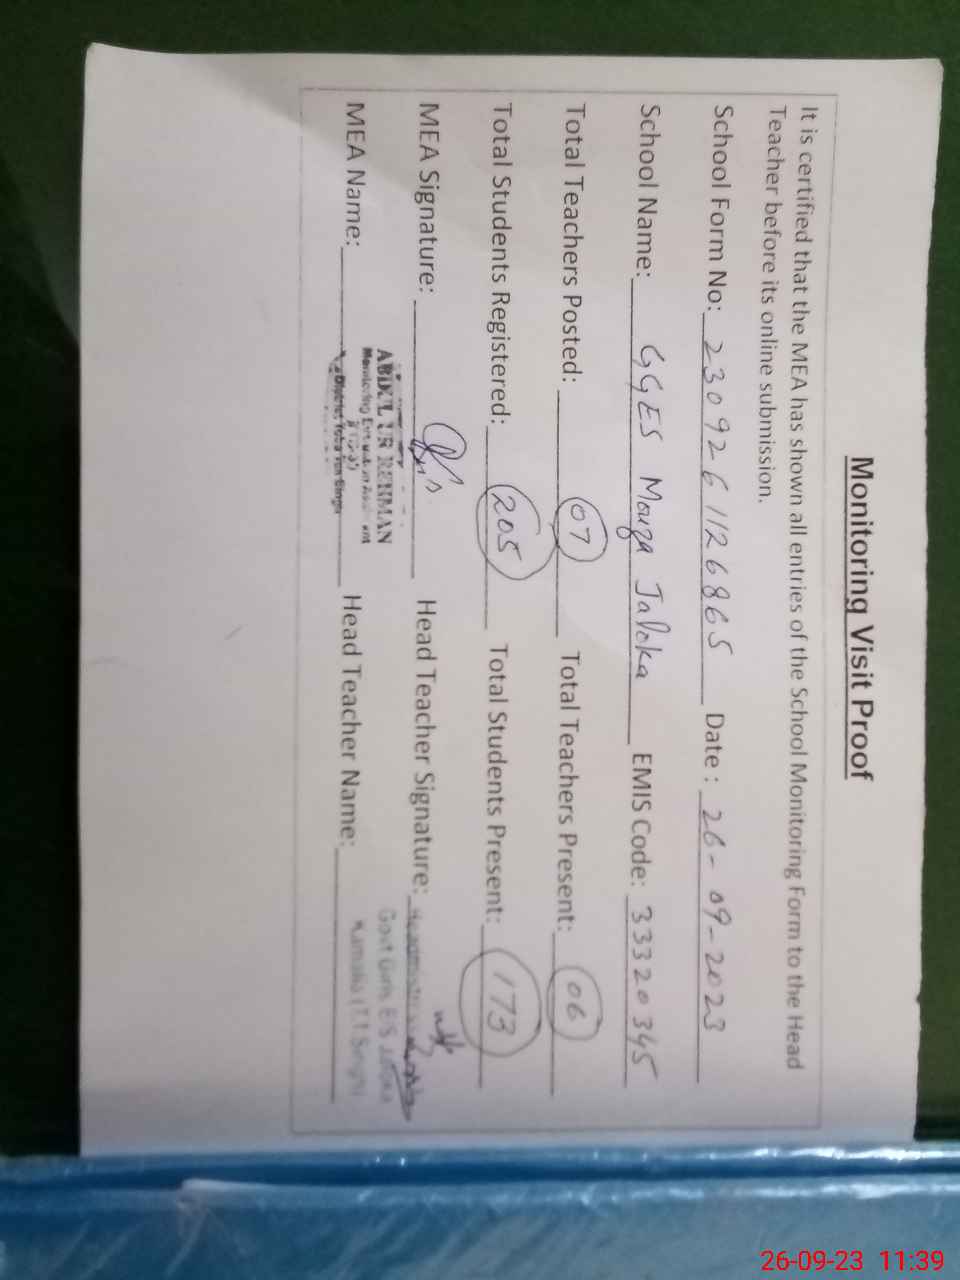 Monitoring Visit Proof
It is certified that the MEA has shown all entries of the School Monitoring Form to the Head
Teacher before its online submission.
School Form No: 2309261126865 Date : 26-09-2023
School Name: GGES Mouza Jaloka EMIS Code: 33320345
Total Teachers Posted: 07 Total Teachers Present: 06
Total Students Registered: 205 Total Students Present: 173
MEA Signature: Head Teacher Signature:
MEA Name: Head Teacher Name:
ABDUL UR REHMAN
District Toba Tek Singh
Govt Girls E/S
26-09-23 11:39